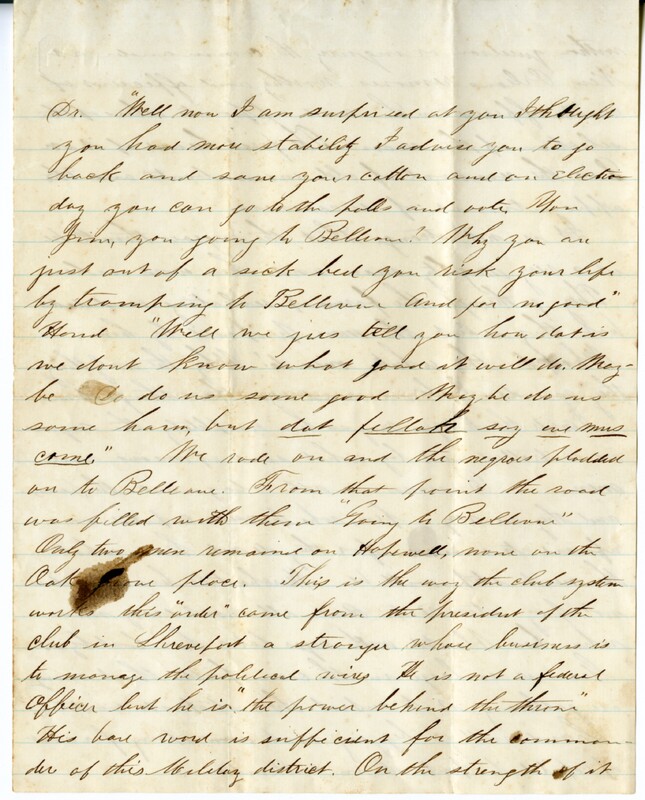 Dr. "Well now I am surprised at you I thought
you had more stability I advise you to go
back and save your cotton and on election
day you can go to the polls and vote. You
Jim, you going to Bellevue! Why you are
just out of a sick bed you risk your life
by tramping to Bellevue And for no good"
Hand "Well we jus tell you how dat is
we dont know what good it will do. May-
be do us some good Maybe do us
some harm, but dat fellah say we mus
come." We rode on and the negroes plodded
on to Bellevue. From that point the road
was filled with them "Going to Bellevue"
Only two men remained on Hopewell, none on the
Oak Grove place. This is the way the club system
works this "order" came from the president of the
club in Shreveport a stranger whose business is
to manage the political wires He is not a federal
Officer but he is "the power behind the throne"
His bare word is sufficient for the comman-
der of this Military district. On the strength of it